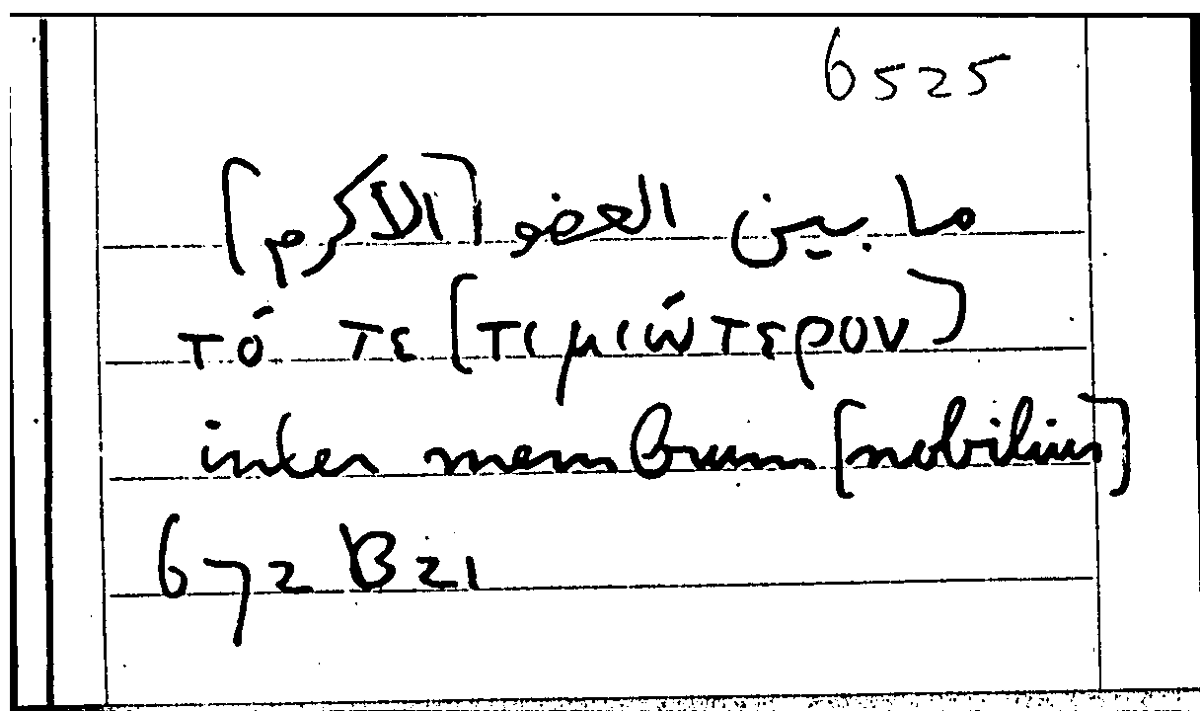 6525
ما بين العضو [الاكرم]
τό τε [τιμιώτερον]
inter membrum [nobilius]
672 B 21